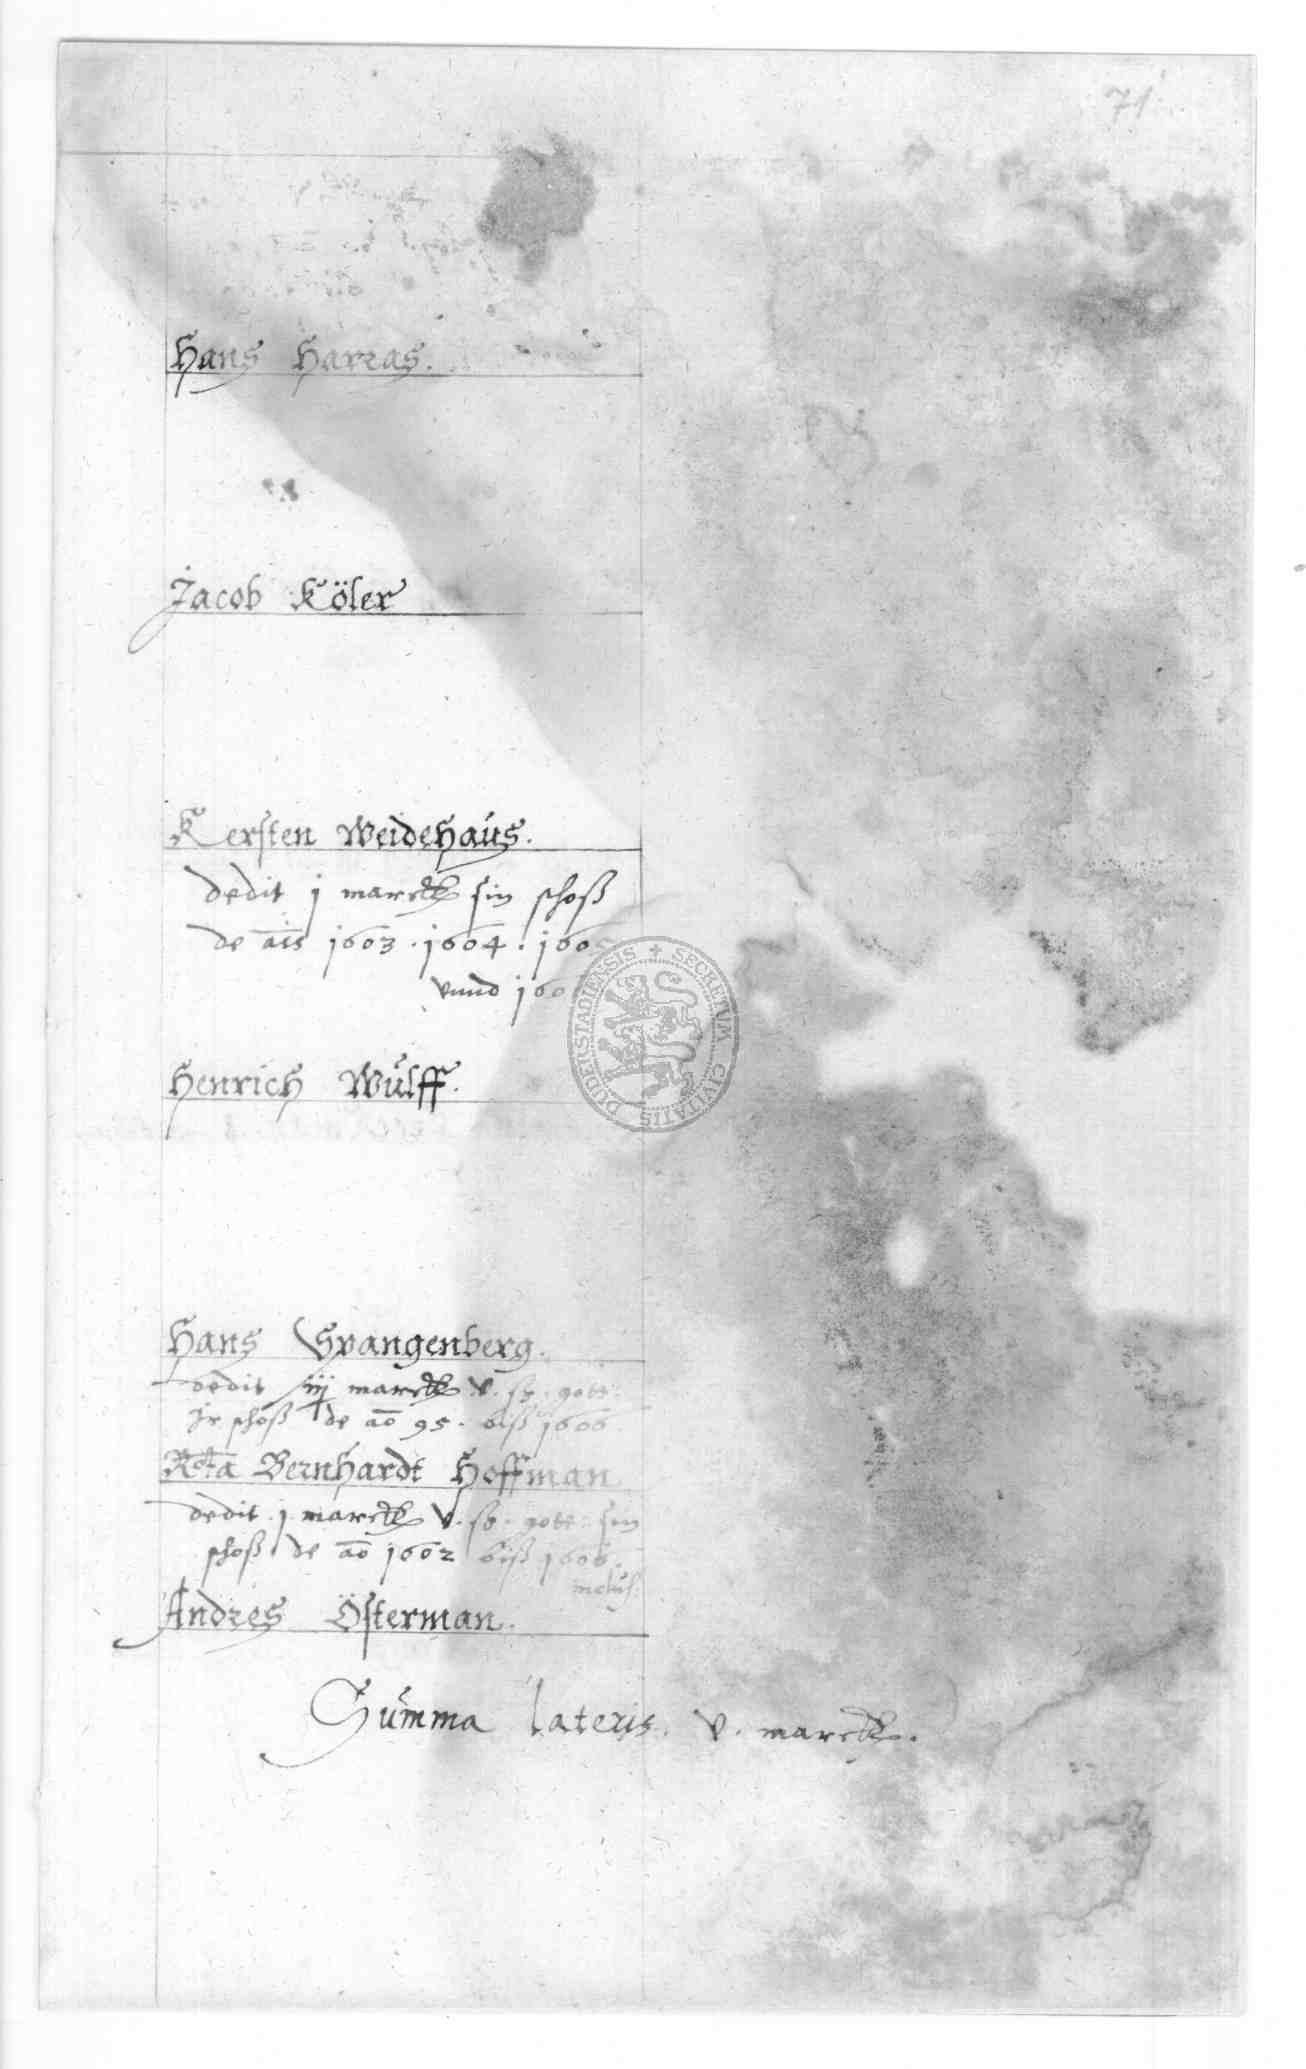 71
Hans Harras.
Jacob Köler
Kersten Weidehaus.
dedit j marck sin schoß
de ais 1603 . 1604 . 160
vnnd 160
SECRETUM CIVITATIS DUDERSTADIENSIS
Henrich Wulff.
Hans Spangenberg.
dedit iiij marck v. gott
Ir schoß de ao 95. biß 1606
Rcta Bernhardt Hoffman
dedit j marck v. gott sin
schoß de ao 1602 biß 1606.
inclus.
Andres Österman.
Summa lateris. v. marck.